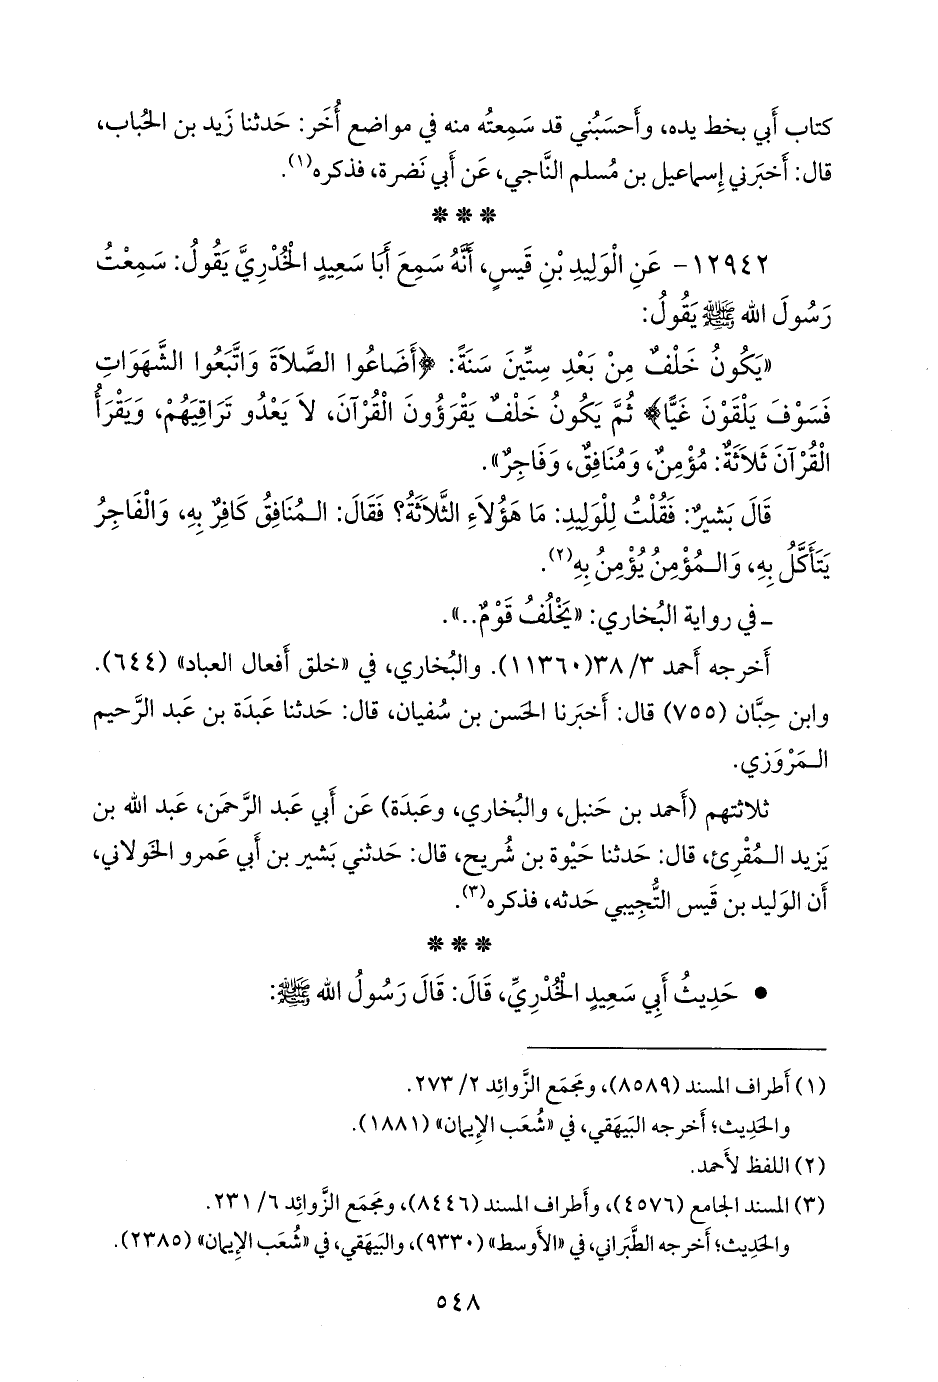 كتاب أَبي بخط يده، وأَحسَبُني قد سَمِعتُه منه في مواضع أُخَر: حَدثنا زَيد بن الحُباب،
قال: أَخبَرني إِسماعيل بن مُسلم النَّاجي، عَن أَبي نَضرة، فذكره(١).
* * *
١٢٩٤٢- عَنِ الْوَلِيدِ بْنِ قَيسٍ، أَنَّهُ سَمِعَ أَبَا سَعِيدٍ الْخُدْرِيَّ يَقُولُ: سَمِعْتُ
رَسُولَ الله ﷺ يَقُولُ:
«يَكُونُ خَلْفٌ مِنْ بَعْدِ سِتِّينَ سَنَةً: ﴿أَضَاعُوا الصَّلاَةَ وَاتَّبَعُوا الشَّهَوَاتِ
فَسَوْفَ يَلْقَوْنَ غَيًّا﴾ ثُمَّ يَكُونُ خَلْفٌ يَقْرَؤُونَ الْقُرْآنَ، لاَ يَعْدُو تَرَاقِيَهُمْ، وَيَقْرَأُ
الْقُرْآنَ ثَلاَثَةٌ: مُؤْمِنٌ، وَمُنَافِقٌ، وَفَاجِرٌ».
قَالَ بَشيرٌ: فَقُلْتُ لِلْوَلِيدِ: مَا هَؤُلاَءِ الثَّلاَثَةُ؟ فَقَالَ: الـمُنَافِقُ كَافِرٌ بِهِ، وَالْفَاجِرُ
يَتَأَكَّلُ بِهِ، وَالـمُؤْمِنُ يُؤْمِنُ بِهِ(٢).
ـ في رواية البُخاري: «يَخْلُفُ قَوْمٌ..».
أَخرجه أَحمد ٣/ ٣٨(١١٣٦٠). والبُخاري، في «خلق أَفعال العباد» (٦٤٤).
وابن حِبَّان (٧٥٥) قال: أَخبَرنا الحَسن بن سُفيان، قال: حَدثنا عَبدَة بن عَبد الرَّحيم
الـمَرْوَزي.
ثلاثتهم (أَحمد بن حَنبل، والبُخاري، وعَبدَة) عَن أَبي عَبد الرَّحمَن، عَبد الله بن
يَزيد الـمُقْرِئ، قال: حَدثنا حَيْوة بن شُريح، قال: حَدثني بَشير بن أَبي عَمرو الخَولاني،
أَن الوَليد بن قَيس التُّجيبي حَدثه، فذكره(٣).
* * *
• حَدِيثُ أَبِي سَعِيدٍ الْخُدْرِيِّ، قَالَ: قَالَ رَسُولُ الله ﷺ:
(١) أَطراف المسند (٨٥٨٩)، ومَجمَع الزَّوائِد ٢/ ٢٧٣.
والحَدِيث؛ أَخرجه البَيهَقي، في «شُعَب الإِيمان» (١٨٨١).
(٢) اللفظ لأَحمد.
(٣) المسند الجامع (٤٥٧٦)، وأَطراف المسند (٨٤٤٦)، ومَجمَع الزَّوائِد ٦/ ٢٣١.
والحَدِيث؛ أَخرجه الطَّبَراني، في «الأَوسط» (٩٣٣٠)، والبَيهَقي، في «شُعَب الإِيمان» (٢٣٨٥).
٥٤٨